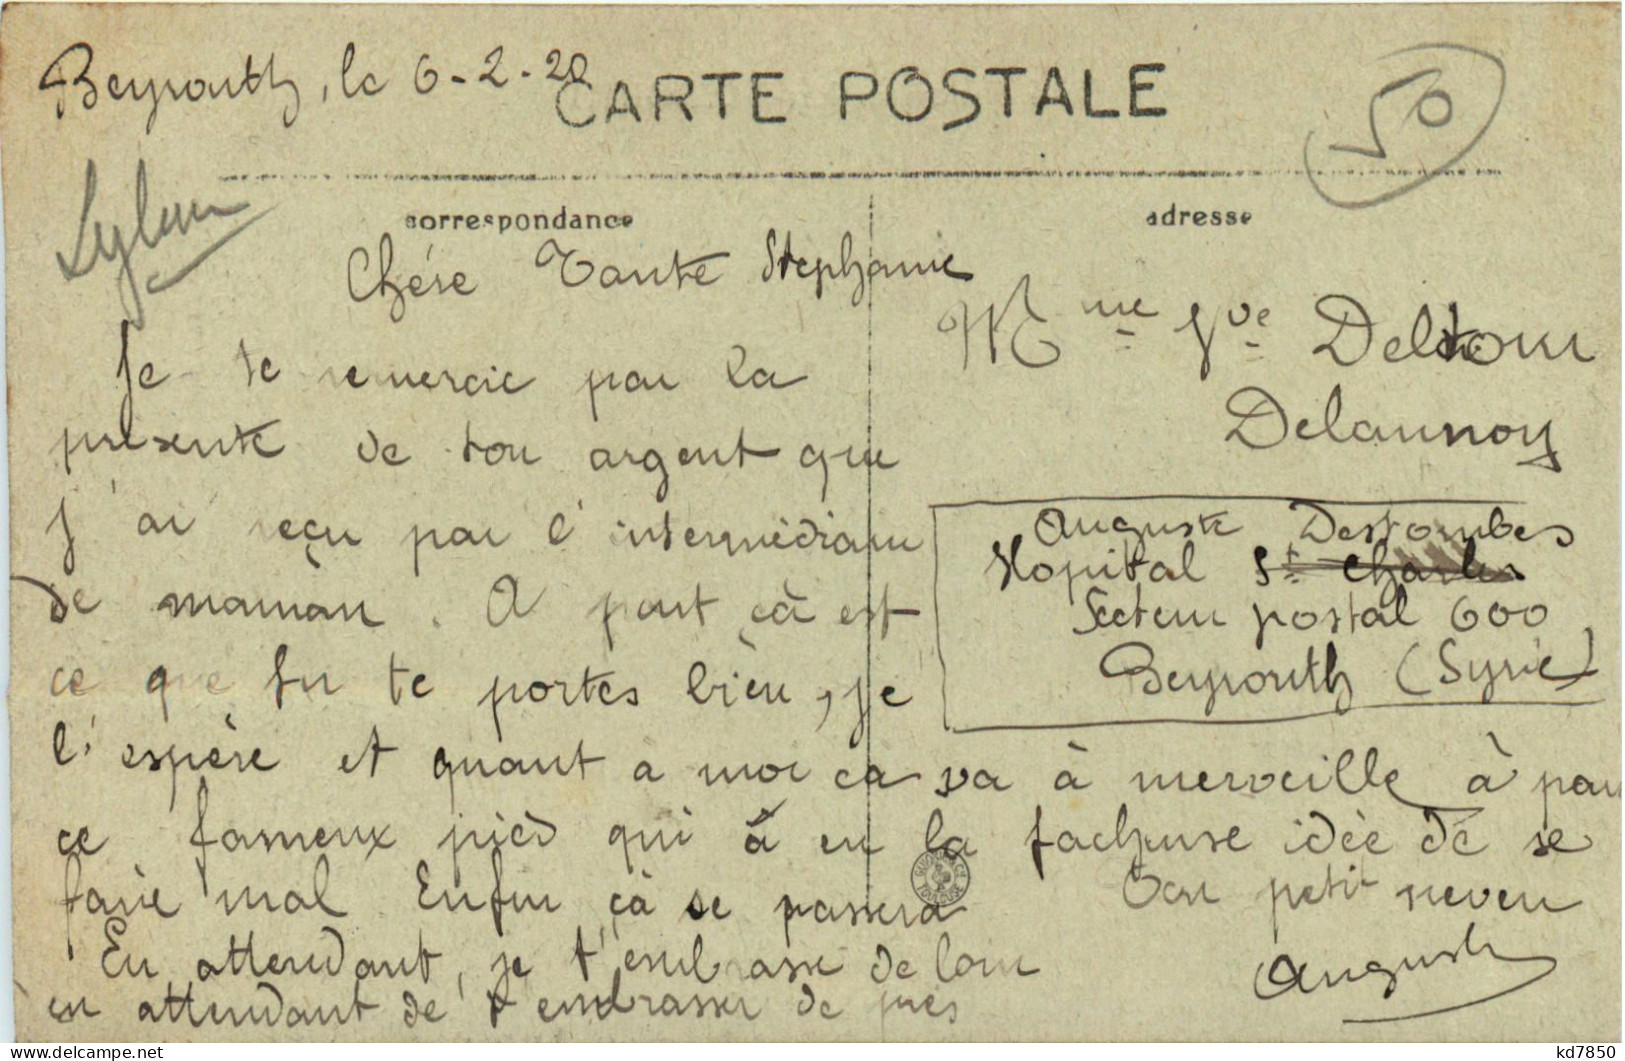 Beyrouth, le 6-2-20
CARTE POSTALE
50
correspondance
adresse
Chère Tante Stephanie
Je te remercie par la
présente de ton argent que
j'ai reçu par l'intermédiaire
de maman. A part çà est
ce que tu te portes bien, je
l'espère et quant a moi ca va à merveille à part
ce fameux pied qui à eu la facheuse idée de se
faire mal Enfin, çà se passera
En attendant, je t'embrasse de loin
en attendant de t'embrasser de près
Ton petit neveu
Auguste
Mme Vve Deltour
Delaunoy
Auguste Destombes
Hopital St Charles
Secteur postal 600
Beyrouth (Syrie)
kd7850